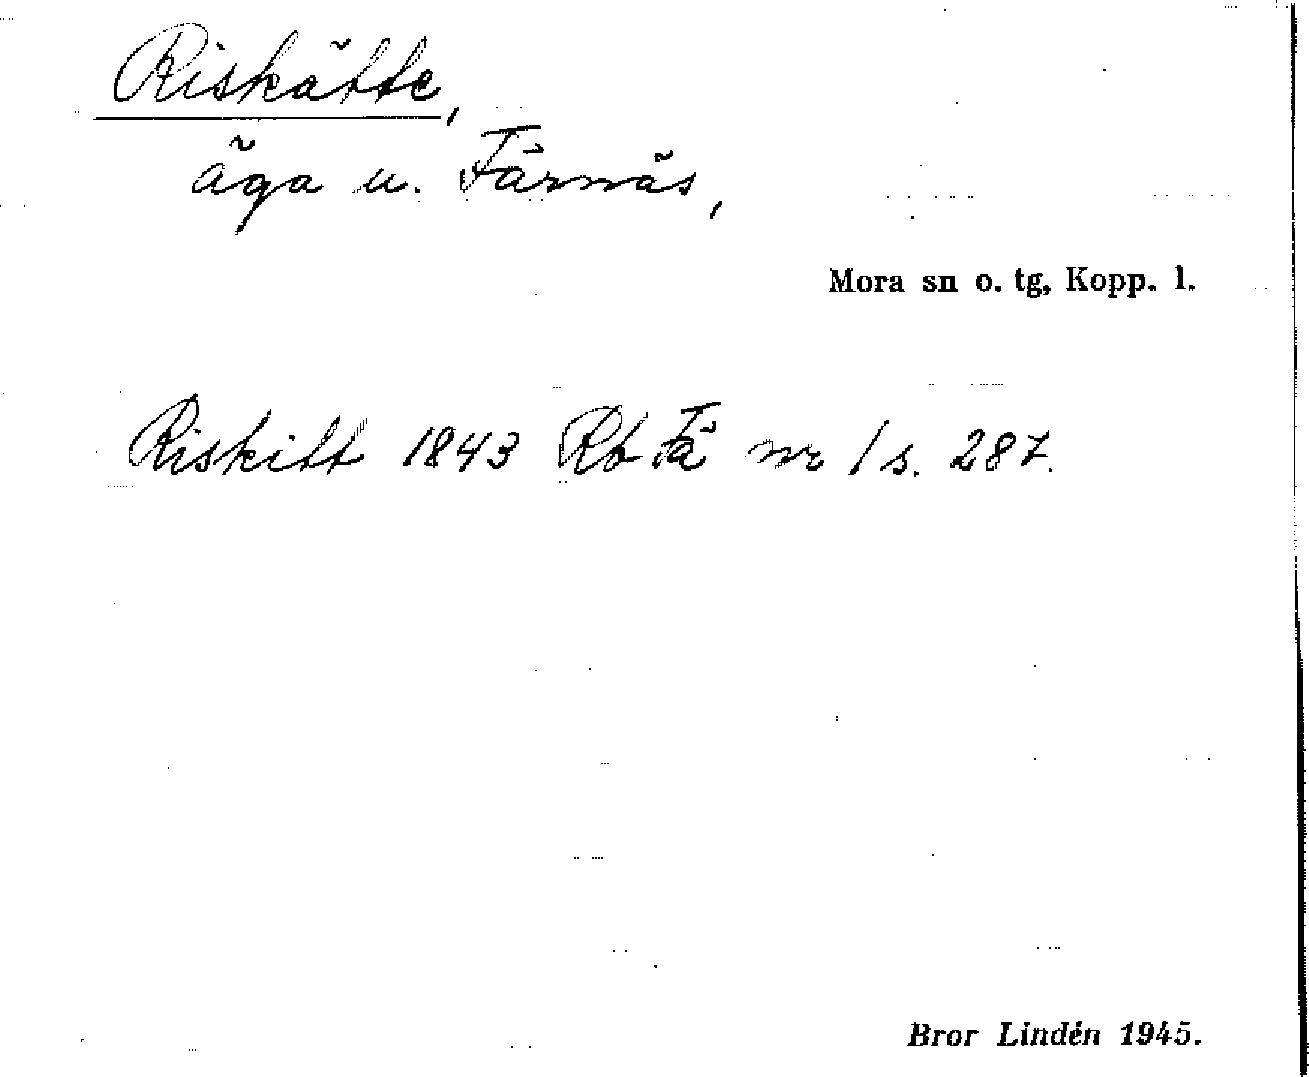 Riskätte,
äga u. Färnäs,
Mora sn o. tg, Kopp. l.
Riskitt 1843 Rb Fä nr 1 s. 287.
Bror Lindén 1945.